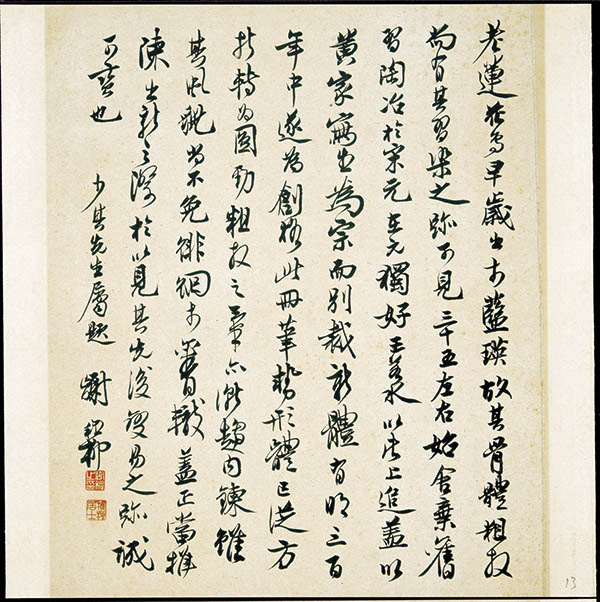 老蓮花鳥早歲出於藍瑛故其骨體粗放
尚有其習染之跡可見三十五左右始舍棄舊
習陶冶於宋元在元獨好王若水以此上進蓋以
黃家寫生為宗而別裁新體有明三百
年中遂為創格此冊筆勢形體已從方
折轉為圓勁粗放之筆亦漸趨內鍊雖
其風貌尚不免徘徊於舊轍蓋正當推
陳出新之際於以見其先後變易之跡誠
可寶也
少其先生屬題 謝稚柳
13